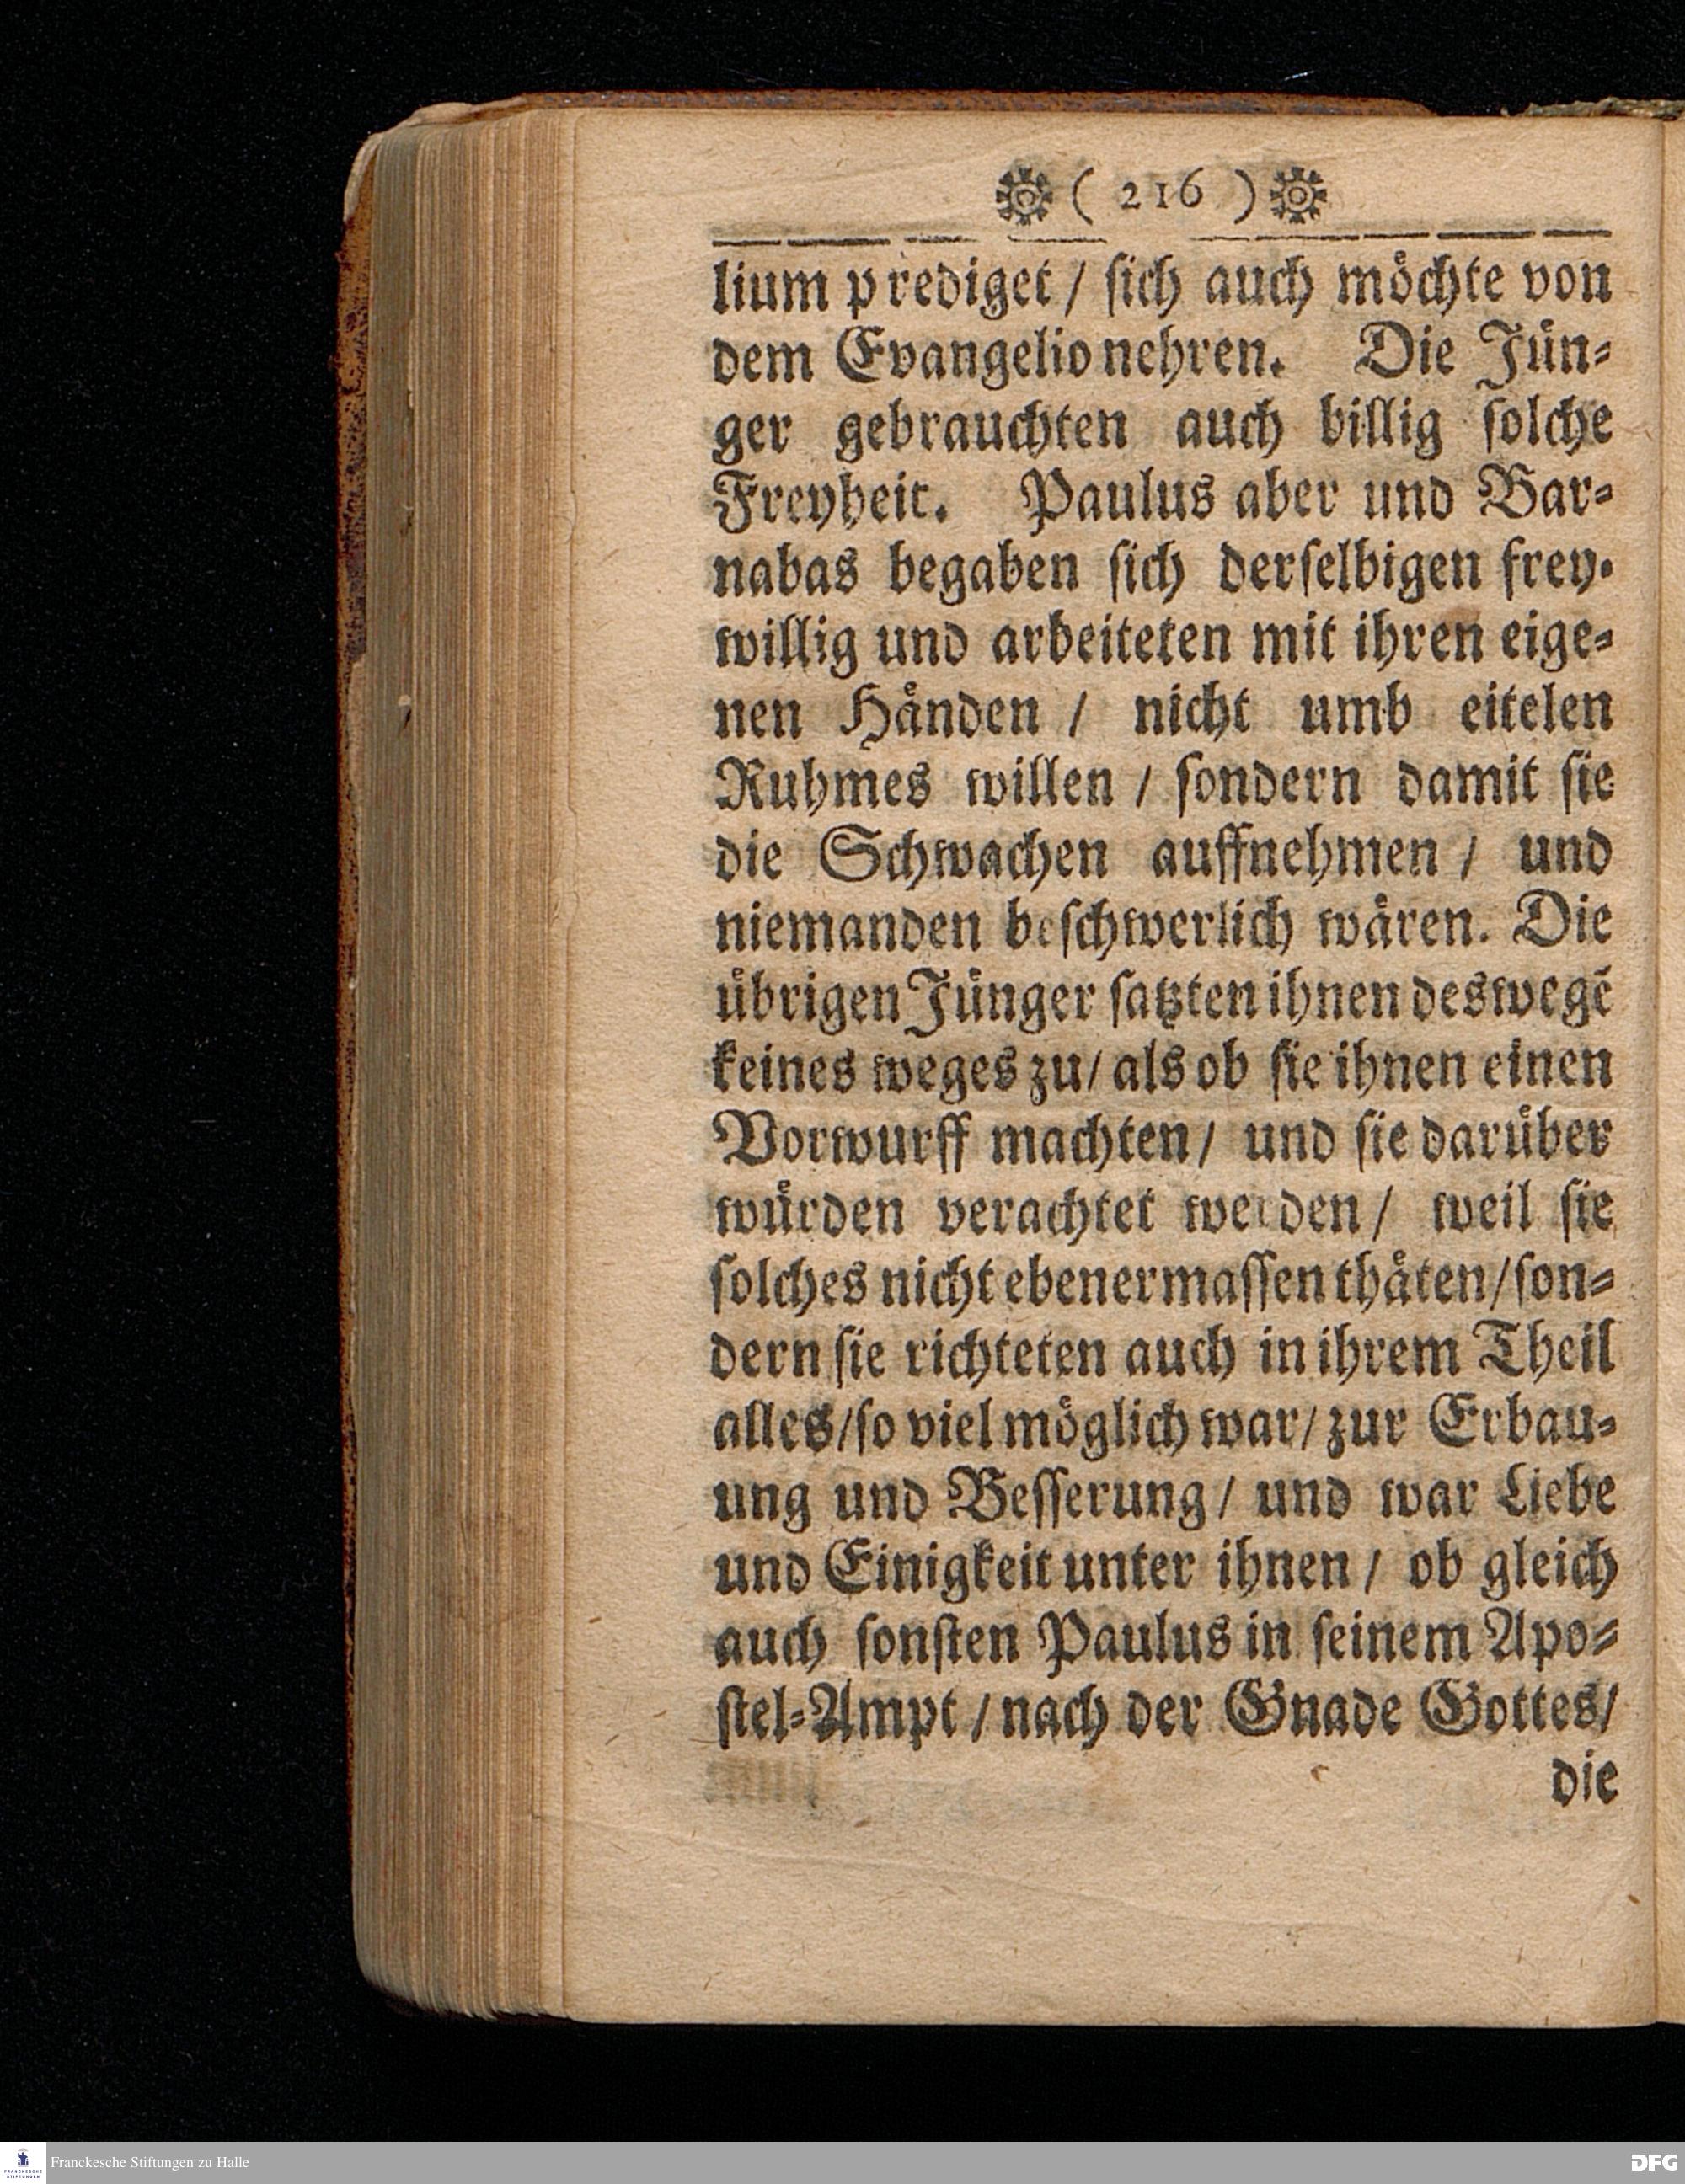 ( 216 )
lium prediget / ſich auch moͤchte von
dem Evangelio nehren. Die Juͤn-
ger gebrauchten auch billig ſolche
Freyheit. Paulus aber und Bar-
nabas begaben ſich derſelbigen frey-
willig und arbeiteten mit ihren eige-
nen Haͤnden / nicht umb eitelen
Ruhmes willen / ſondern damit ſie
die Schwachen auffnehmen / und
niemanden beſchwerlich waͤren. Die
uͤbrigen Juͤnger ſatzten ihnen deswegē
keines weges zu / als ob ſie ihnen einen
Vorwurff machten / und ſie daruͤber
wuͤrden verachtet werden / weil ſie
ſolches nicht ebenermaſſen thaͤten / ſon-
dern ſie richteten auch in ihrem Theil
alles / ſo viel moͤglich war / zur Erbau-
ung und Beſſerung / und war Liebe
und Einigkeit unter ihnen / ob gleich
auch ſonſten Paulus in ſeinem Apo-
ſtel-Ampt / nach der Gnade Gottes /
die
FRANCKESCHE
STIFTUNGEN
Franckesche Stiftungen zu Halle
DFG